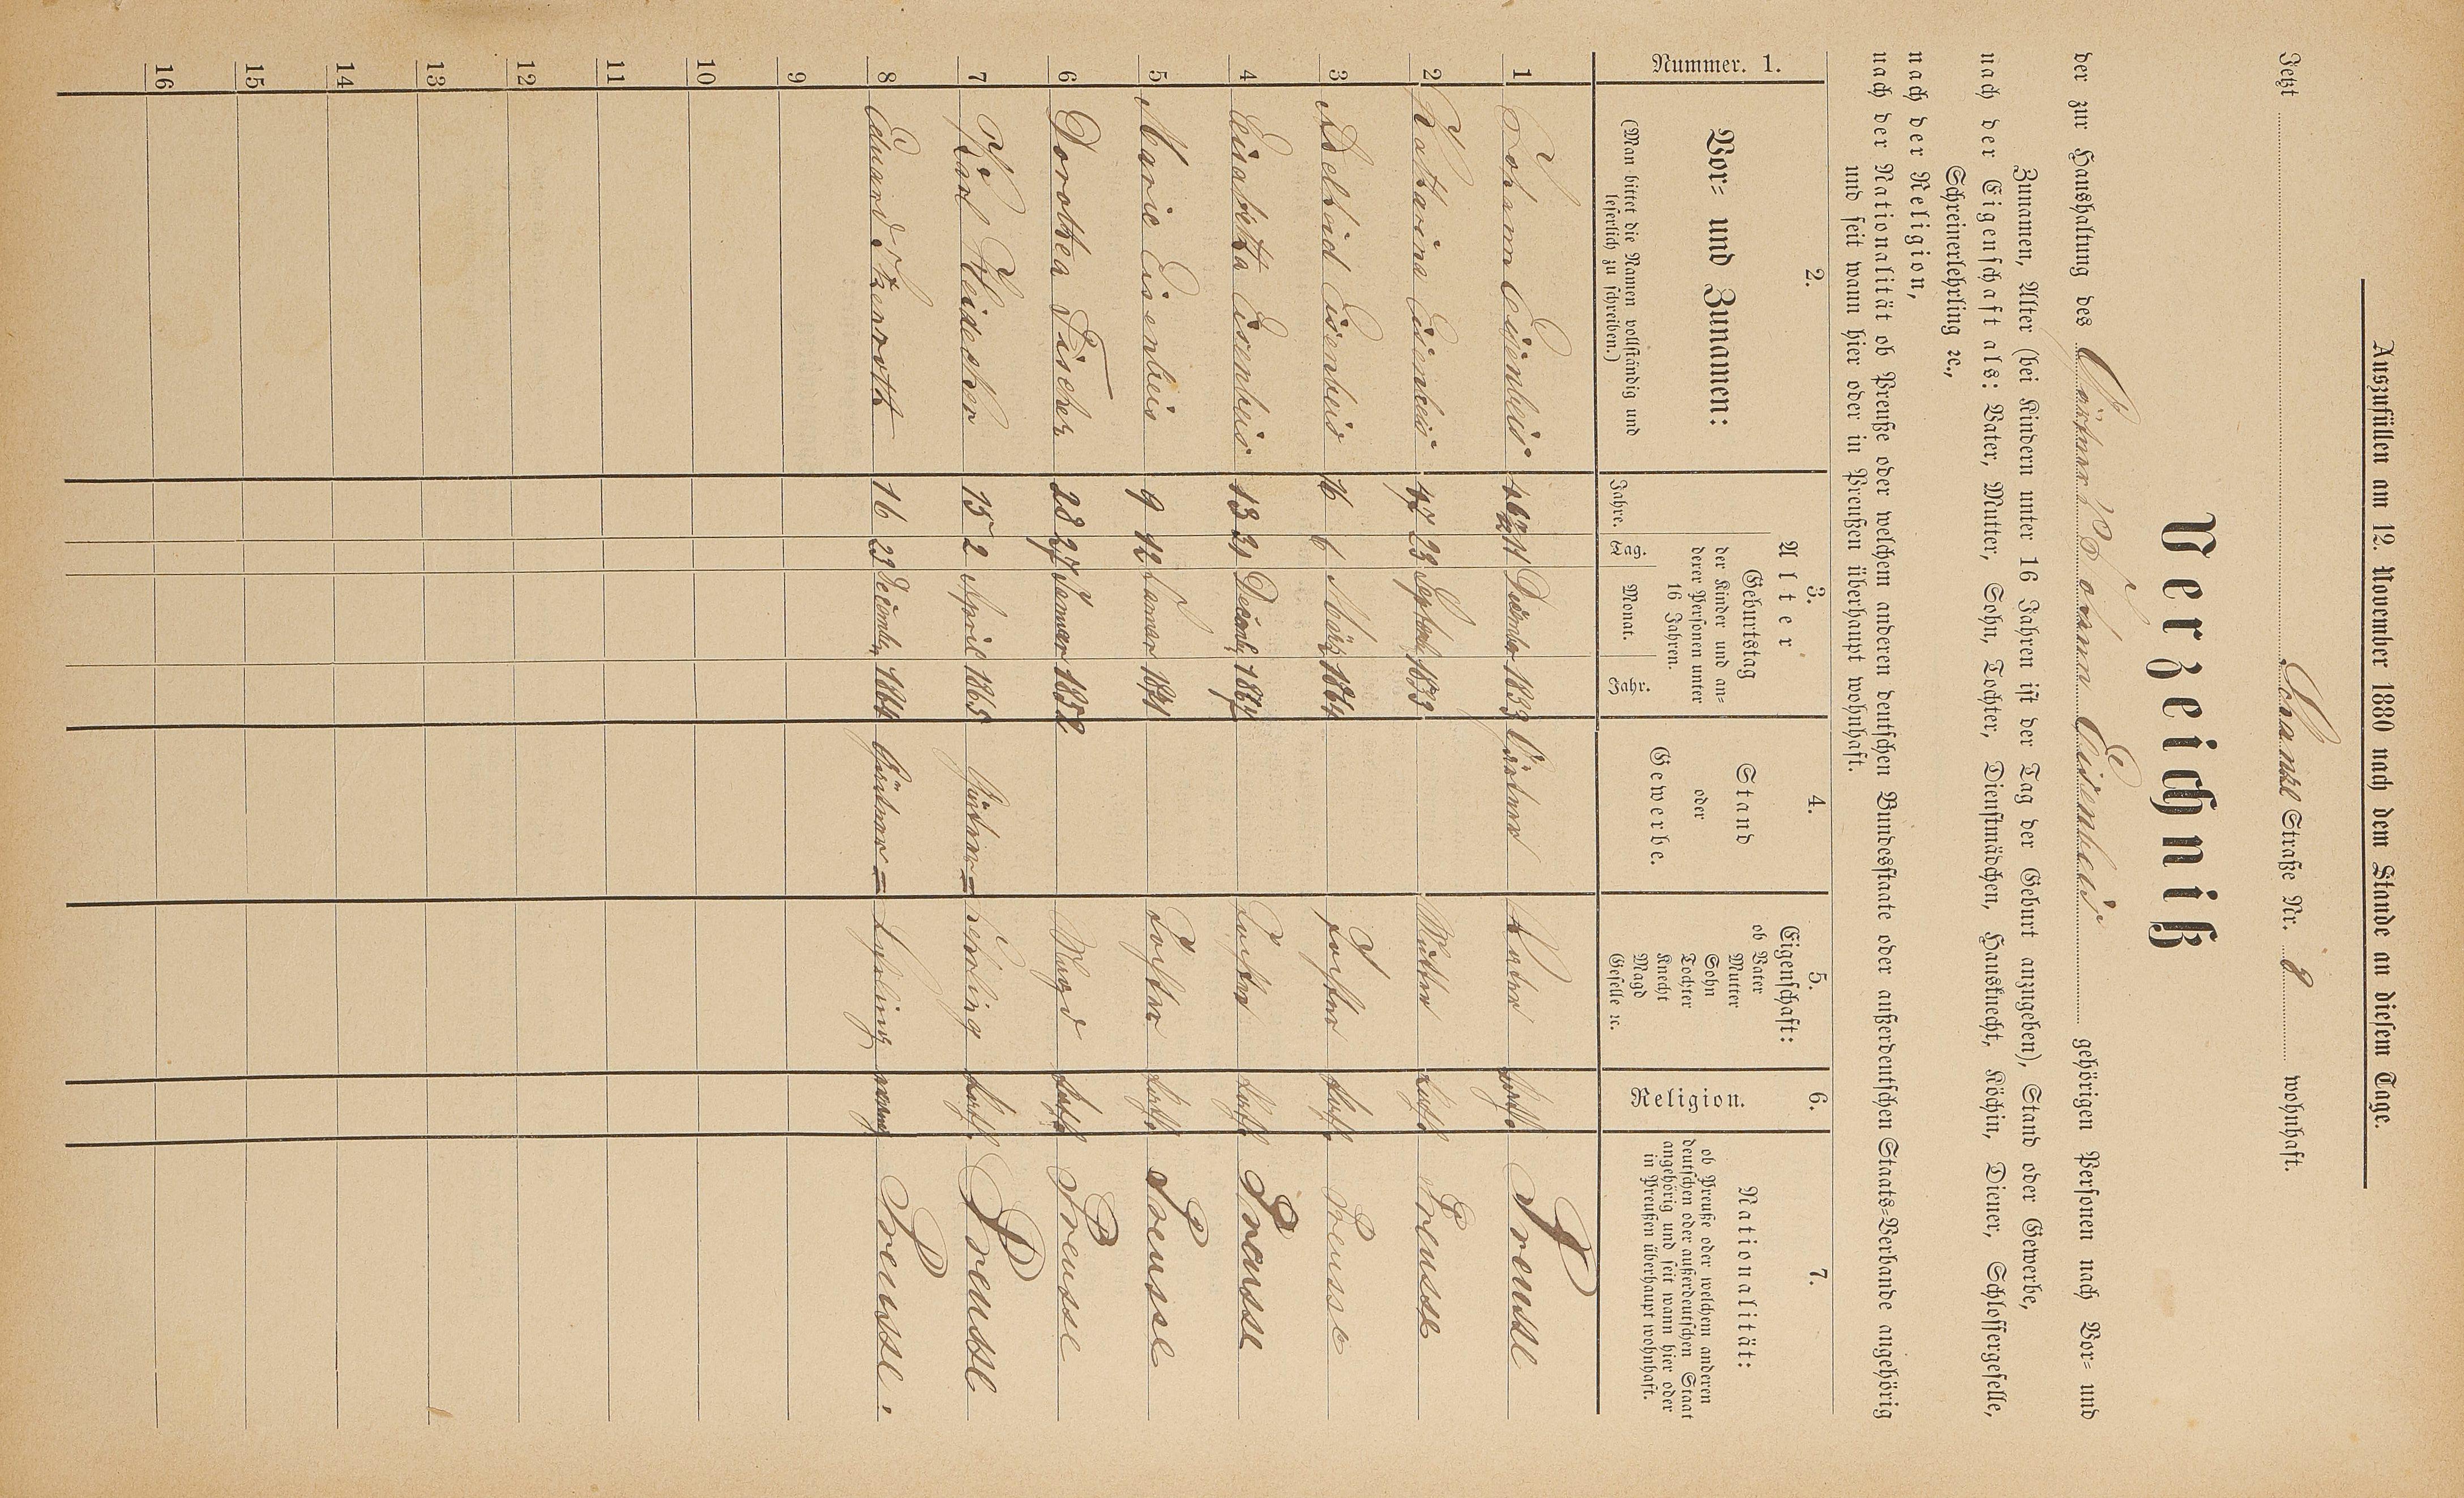 Auszufüllen am 12. November 1880 nach dem Stande an diesem Tage.
Jetzt Schanzel Straße Nr. 8 wohnhaft.
Verzeichniß
der zur Haushaltung des Gärtner Johann Eisenbeis gehörigen Personen nach Vor- und
Zunamen, Alter (bei Kindern unter 16 Jahren ist der Tag der Geburt anzugeben), Stand oder Gewerbe,
nach der Eigenschaft als: Vater, Mutter, Sohn, Tochter, Dienstmädchen, Hausknecht, Köchin, Diener, Schlossergeselle,
Schreinerlehrling ꝛc.,
nach der Religion,
nach der Nationalität ob Preuße oder welchem anderen deutschen Bundesstaate oder außerdeutschen Staats-Verbande angehörig
und seit wann hier oder in Preußen überhaupt wohnhaft.
Nummer. 1.
2.
Vor- und Zunamen:
(Man bittet die Namen vollständig und
leserlich zu schreiben.)
3.
Alter
Jahre.
Geburtstag
der Kinder und an-
derer Personen unter
16 Jahren.
Tag. Monat. Jahr.
4.
Stand
oder
Gewerbe.
5.
Eigenschaft:
ob Vater
Mutter
Sohn
Tochter
Knecht
Magd
Geselle ꝛc.
6.
Religion.
7.
Nationalität:
ob Preuße oder welchem anderen
deutschen oder außerdeutschen Staat
angehörig und seit wann hier oder
in Preußen überhaupt wohnhaft.
1 Johann Eisenbeis 11 December 1833 Gärtner Vater kath. Preusse
2 Katharina Eisenbeis 47 23 Septemb 1833 Mutter kath. Preusse
3 Adelheid Eisenbeis 16 6 März 1864 Tochter kath. Preusse
4 Elisabetha Eisenbeis 13 21 Decemb. 1867 Tochter kath. Preusse
5 Marie Eisenbeis 9 12 Januar 1871 Tochter kath. Preusse
6 Dorothea Fischer 28 27 Januar 1852 Magd kath. Preusse
7 Karl Heidecker 15 2 April 1865 Gärtner= Lehrling kath. Preusse
8 Eduard 16 23 December 1864 Gärtner= Lehrling Preusse.
9
10
11
12
13
14
15
16